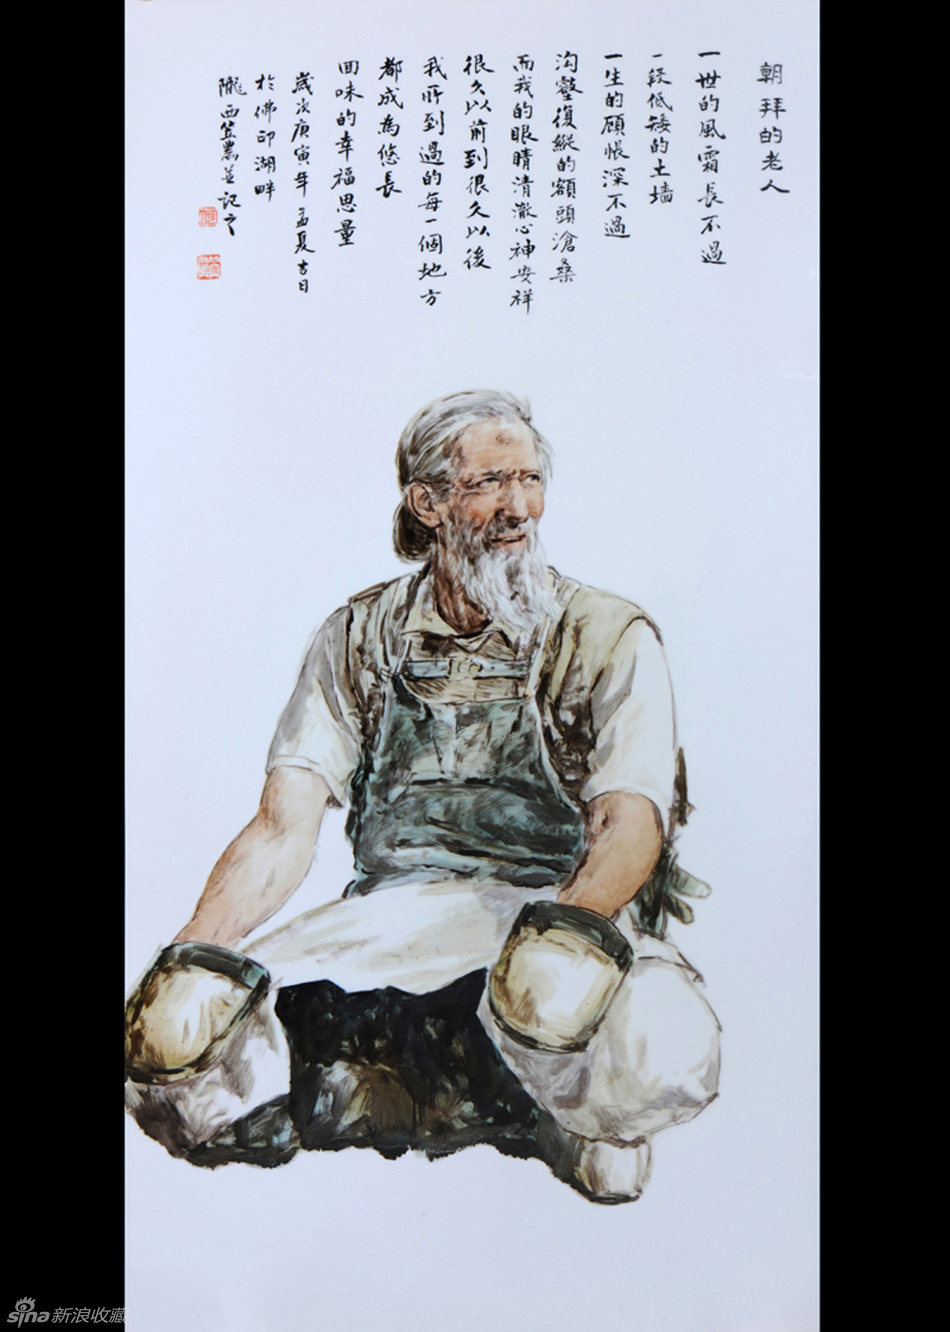 朝拜的老人
一世的風霜長不過
一段低矮的土墙
一生的頋悵深不過
沟壑復縱的額頭滄桑
而我的眼睛清澈心神安祥
很久以前到很久以後
我所到過的每一個地方
都成為悠長
回味的幸福思量
歲次庚寅年孟夏吉日
於佛印湖畔
隴西笠農並記之
sina新浪收藏